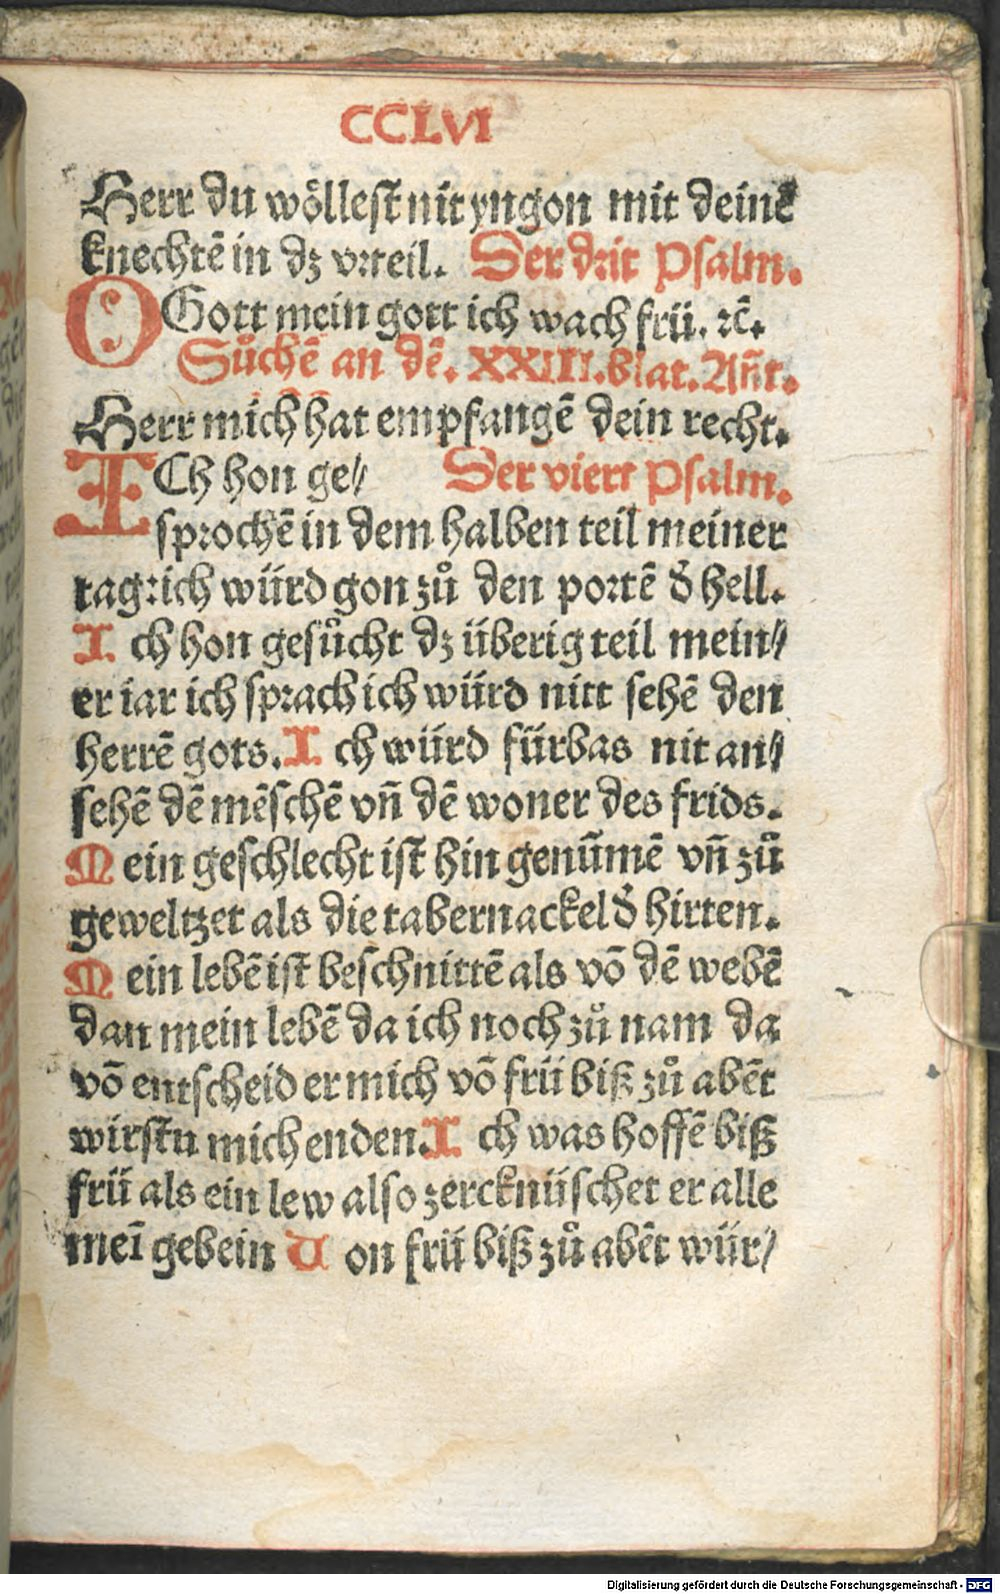 CCLVI
Herr du wöllest nit yngon mit deinē
knechtē in dꝫ vꝛteil. Der dꝛit Psalm.
O Gott mein gott ich wach frü. ꝛc̄.
Sůchē an dē. XXIII. blat. Añt.
Herr mich hat empfangē dein recht.
ICh hon ge⸗ Der viert Psalm.
spꝛochē in dem halben teil meiner
tag: ich würd gon zů den poꝛtē d̕ hell.
Ich hon gesůcht dꝫ überig teil mein⸗
er iar ich spꝛach ich würd nitt sehē den
herrē gots. Ich würd fürbas nit an⸗
sehē dē mēschē vñ dē woner des frids.
Mein geschlecht ist hin genūmē vñ zů
geweltzet als die tabernackel d̕ hirten.
Mein lebē ist beschnittē als võ dē webē
dan mein lebē da ich noch zů nam da
võ entscheid er mich võ frü biß zů abēt
wirstu mich enden. Ich was hoffē biß
frü als ein lew also zercknüschet er alle
meī gebein Von frü biß zů abēt wür⸗
Digitalisierung gefördert durch die Deutsche Forschungsgemeinschaft - DFG